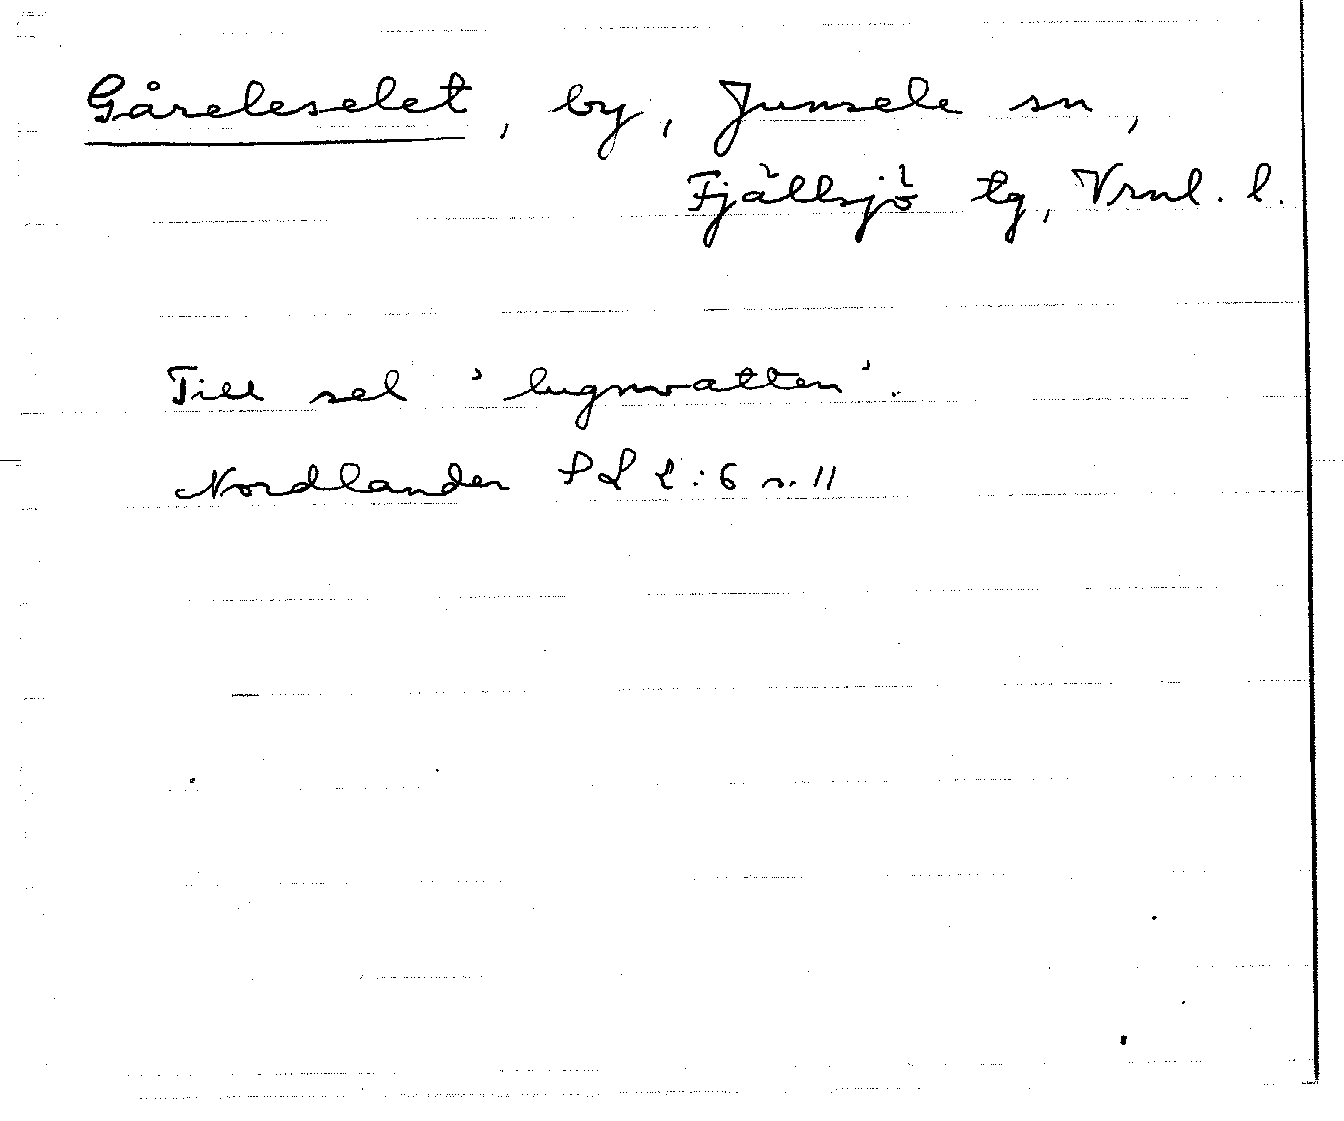 Gåreleselet, by, Junsele sn,
Fjällsjö tg, Vrnl. l.
Till sel 'lugnvatten'.
Nordlander PL 2:6 s. 11